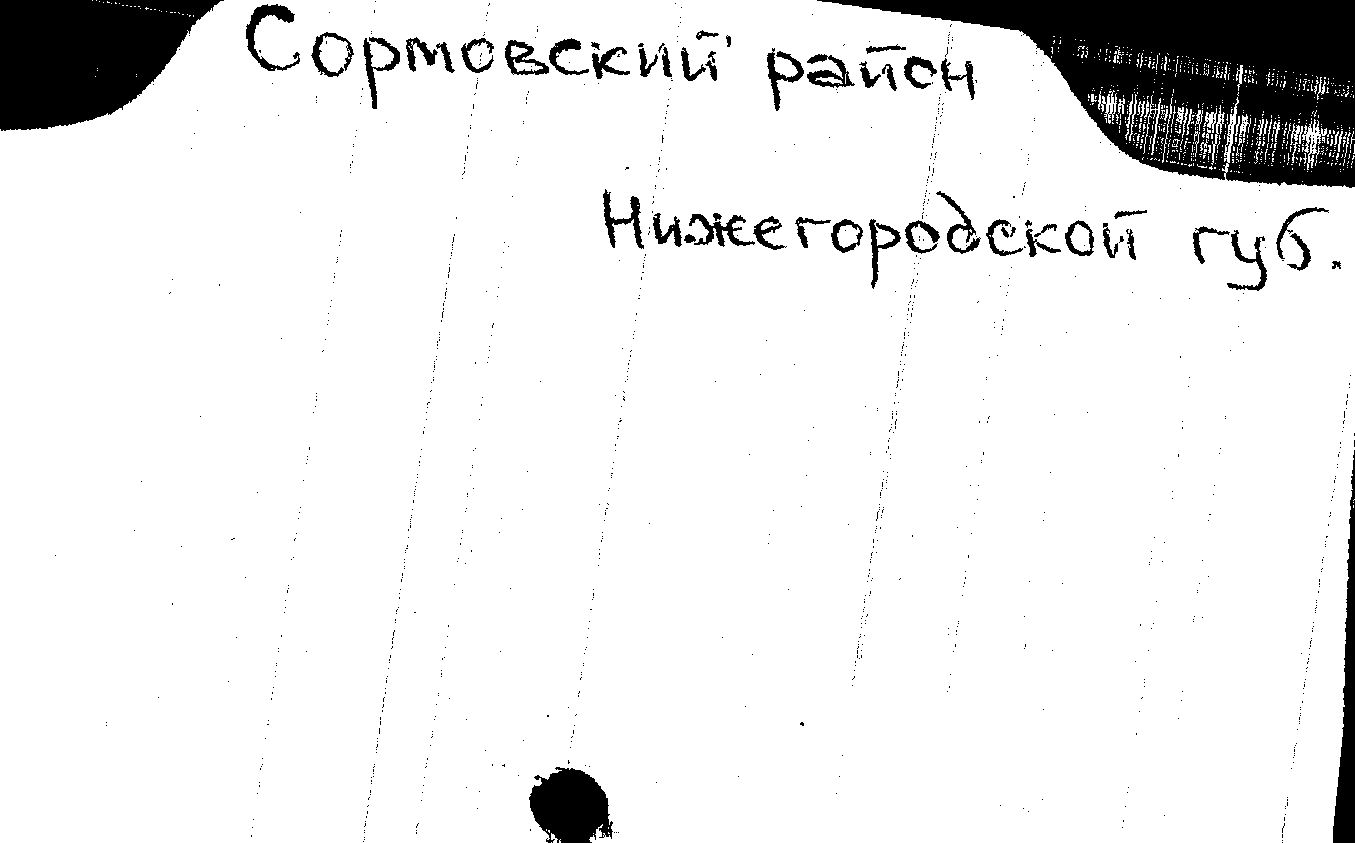 Сормовский район
Нижегородской губ.